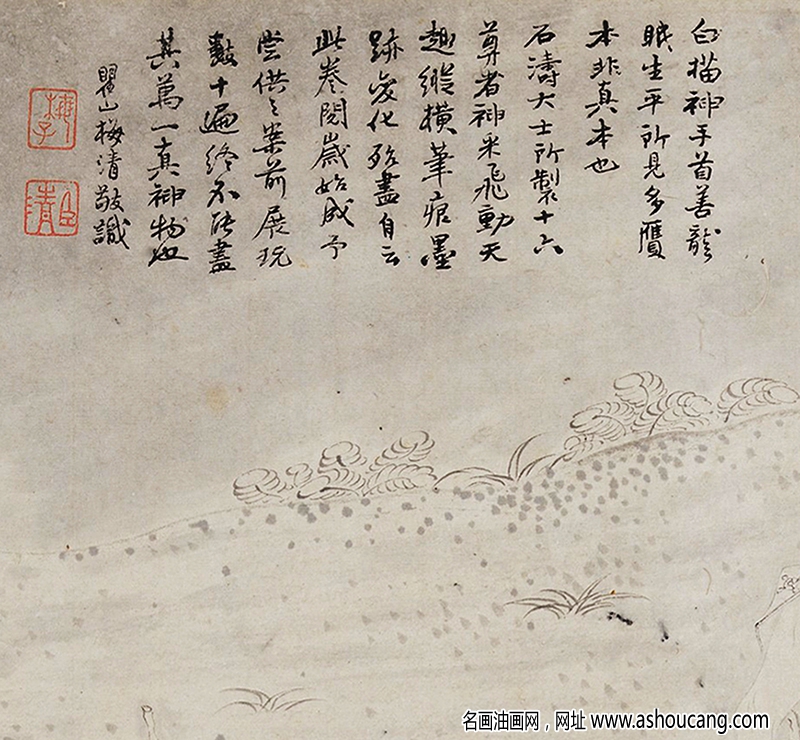 白描神手首善龍
眠生平所見多贋
本非真本也
石濤大士所製十六
尊者神采飛動天
趣縱橫筆痕墨
跡變化殆盡自云
此卷閱歲始成予
嘗供之案前展玩
數十遍終不能盡
其萬一真神物也
瞿山梅清敬識
梅子
臣清
名画油画网，网址 www.ashoucang.com